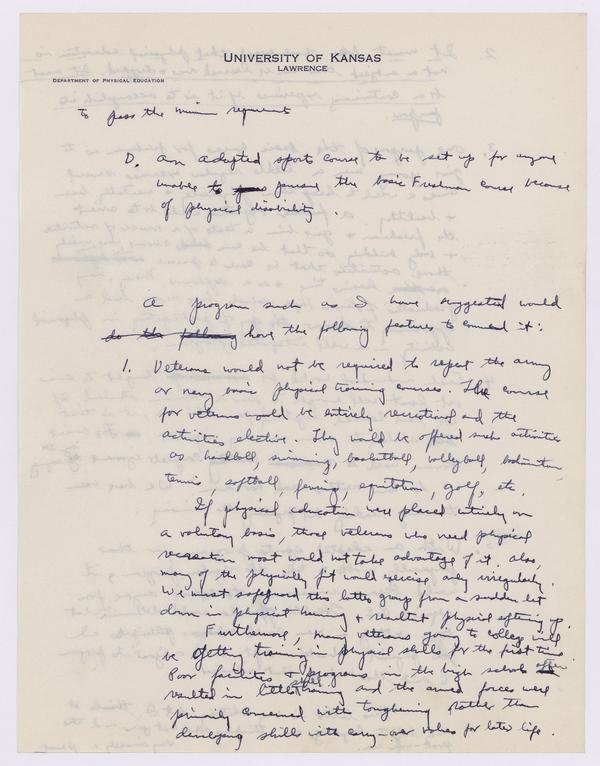 UNIVERSITY OF KANSAS
LAWRENCE
DEPARTMENT OF PHYSICAL EDUCATION
to pass the minimum requirements
D. An adapted sports course to be set up for anyone
unable to pursue the basic Freshman course because
of physical disability.
A program such as I have suggested would
do the following have the following features to commend it:
1. Veterans would not be required to repeat the army
or navy basic physical training courses. The course
for veterans would be entirely recreational and the
activities elective. They would be offered such activities
as handball, swimming, basketball, volleyball, badminton,
tennis, softball, fencing, equitation, golf, etc.
If physical education were placed entirely on
a voluntary basis, those veterans who need physical
recreation most would not take advantage of it. Also,
many of the physically fit would exercise only irregularly.
We must safeguard this latter group from a sudden let
down in physical training & resultant physical softening up.
Furthermore, many veterans going to college will
be getting training in physical skills for the first time.
Poor facilities & programs in the high schools often
resulted in little skill training and the armed forces were
primarily concerned with toughening rather than
developing skills with carry-over values for later life.